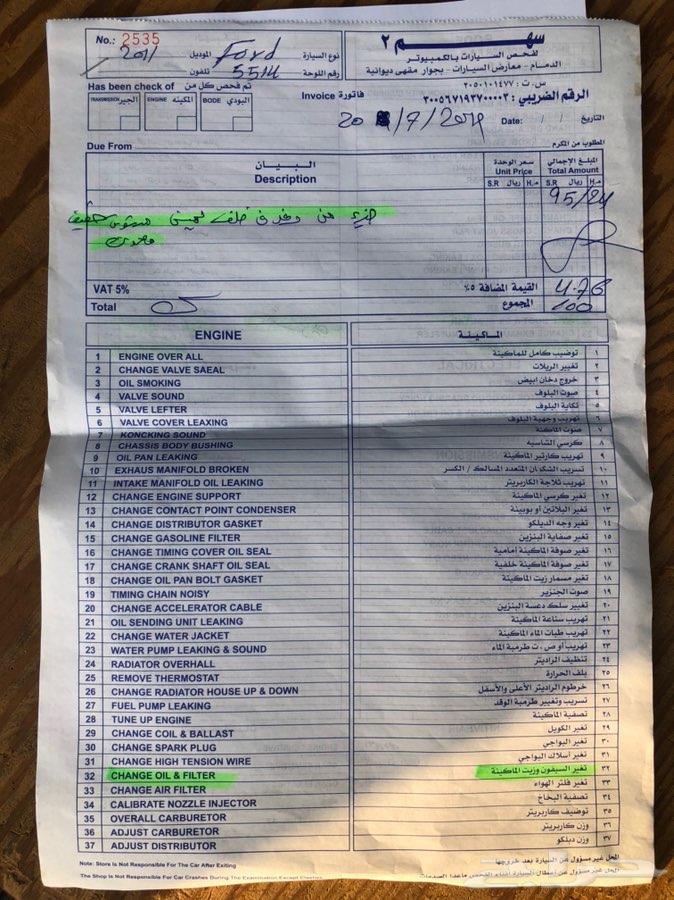 No.: 2535
سهم ٢
لفحص السيارات بالكمبيوتر
الدمام - معارض السيارات - بجوار مقهى ديوانية
نوع السيارة Ford الموديل 2011
رقم اللوحة 5514 تلفون
س . ت : ٢٠٥٠١٠١٤٧٧
Has been check of تم فحص كل من
TRANSMISSION الجير ENGINE المكينه BODE البودي
Invoice فاتورة الرقم الضريبي : ٣٠٠٥٦٧١٩٣٧٠٠٠٠٣
التاريخ / / Date: 7/2019
Due From المطلوب من المكرم
البـــيـــان
Description
سعر الوحدة
Unit Price
S.R ريال H. هـ
المبلغ الإجمالي
Total Amount
S.R ريال H. هـ
95/24
VAT 5% القيمة المضافة ٥٪ 4.76
Total المجموع 100
ENGINE الماكينة
1 ENGINE OVER ALL توضيب كامل للماكينة ١
2 CHANGE VALVE SAEAL تغيير الربلات ٢
3 OIL SMOKING خروج دخان ابيض ٣
4 VALVE SOUND صوت البلوف ٤
5 VALVE LEFTER تكاية البلوف ٥
6 VALVE COVER LEAXING تهريب وجهية البلوف ٦
7 KONCKING SOUND صوت الماكنة ٧
8 CHASSIS BODY BUSHING كرسي الشاسيه ٨
9 OIL PAN LEAKING تهريب كارتير الماكينة ٩
10 EXHAUS MANIFOLD BROKEN تسريب الشكمان المتعدد المسالك / الكسر ١٠
11 INTAKE MANIFOLD OIL LEAKING تهريب ثلاجة الكاربريتر ١١
12 CHANGE ENGINE SUPPORT تغير كرسي الماكينة ١٢
13 CHANGE CONTACT POINT CONDENSER تغير البلاتين أو بوبينة ١٣
14 CHANGE DISTRIBUTOR GASKET تغير وجه الديلكو ١٤
15 CHANGE GASOLINE FILTER تغير صفاية البنزين ١٥
16 CHANGE TIMING COVER OIL SEAL تغير صوفة الماكينة إمامية ١٦
17 CHANGE CRANK SHAFT OIL SEAL تغير صوفة الماكينة خلفية ١٧
18 CHANGE OIL PAN BOLT GASKET تغير مسمار زيت الماكينة ١٨
19 TIMING CHAIN NOISY صوت الجنزير ١٩
20 CHANGE ACCELERATOR CABLE تغيير سلك دعسة البنزين ٢٠
21 OIL SENDING UNIT LEAKING تهريب ساعة الماكينة ٢١
22 CHANGE WATER JACKET تهريب طبات الماء الماكينة ٢٢
23 WATER PUMP LEAKING & SOUND تهريب أو ص . ت طرمبة الماء ٢٣
24 RADIATOR OVERHALL تنظيف الراديتر ٢٤
25 REMOVE THERMOSTAT بلف الحرارة ٢٥
26 CHANGE RADIATOR HOUSE UP & DOWN خرطوم الراديتر الأعلى والأسفل ٢٦
27 FUEL PUMP LEAKING تسريب وتغيير طرمبة الوقد ٢٧
28 TUNE UP ENGINE تصفية الماكينة ٢٨
29 CHANGE COIL & BALLAST تغير الكويل ٢٩
30 CHANGE SPARK PLUG تغير البواجي ٣٠
31 CHANGE HIGH TENSION WIRE تغير أسلاك البواجي ٣١
32 CHANGE OIL & FILTER تغير السيفون وزيت الماكينة ٣٢
33 CHANGE AIR FILTER تغير فلتر الهواء ٣٣
34 CALIBRATE NOZZLE INJECTOR تصفية البخاخ ٣٤
35 OVERALL CARBURETOR توضيف كاربريتر ٣٥
36 ADJUST CARBURETOR وزن كاربريتر ٣٦
37 ADJUST DISTRIBUTOR وزن دبلكو ٣٧
Note: Store Is Not Responsible For The Car After Exiting المحل غير مسؤول عن السيارة بعد خروجها
The Shop Is Not Responsible For Car Crashes During The Examination Except Crashes المحل غير مسؤول عن أعطال السيارة أثناء الفحص ماعدا الصدمات